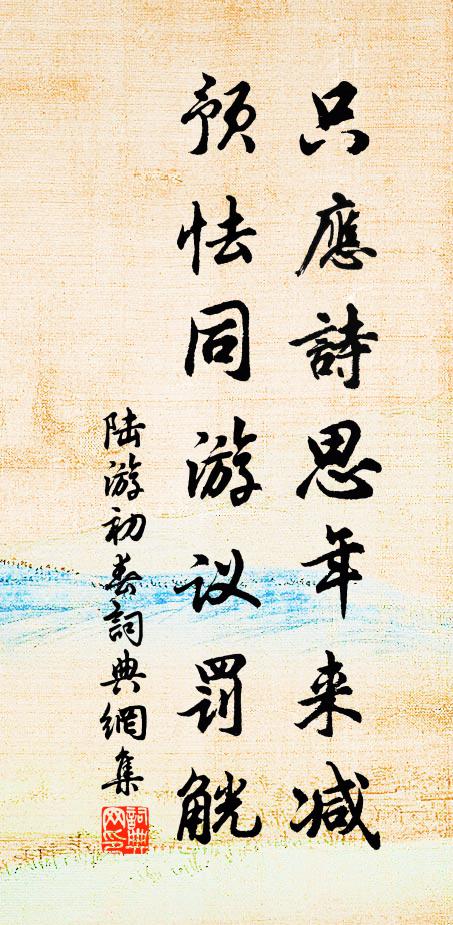 只應詩思年来减
预怯同游议罰觥
陆游初春詞典網集